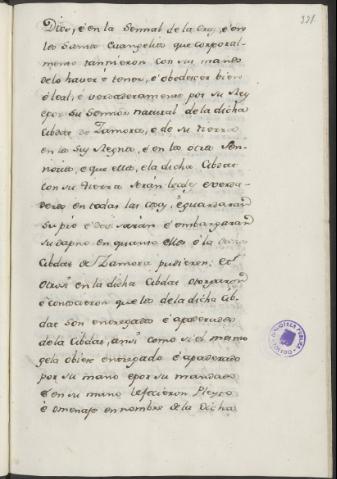 331
Dios, é en la Señal de la Cruz, é en
los Santos Euangelios que corporal-
mente tannieron con sus manos
de lo hauer é tener, é obedescer bien
é leal, e verdaderamente por su Rey
e por su Señor natural de la dicha
Cibdat de Zamora, e de su tierra
en la Reyna, é en la otra
e que ellos, e la dicha Cibdat
con su tierra serán leales e verda-
deros en todas las cosas, é guardarán
su pro é é embargarán
su dapno en quanto ellos é la dicha
Cibdat de Zamora pudieren: Et
Otrosi en la dicha Cibdat otorgaron
é conoscieron que los de la dicha Cib-
dat son entregados é apoderados
de la Cibdat, ansi como si él mesmo
gela obiese entregado é apoderado
por su mano e por su mandado
é en su mano le fecieron Pleyto
é omenaje en nombre de la dicha
BIBLIOTECA PUBLICA